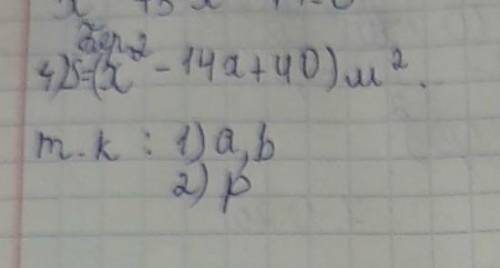 4) S=(x² - 14x + 40) м².
т.к : 1) a, b
2) p